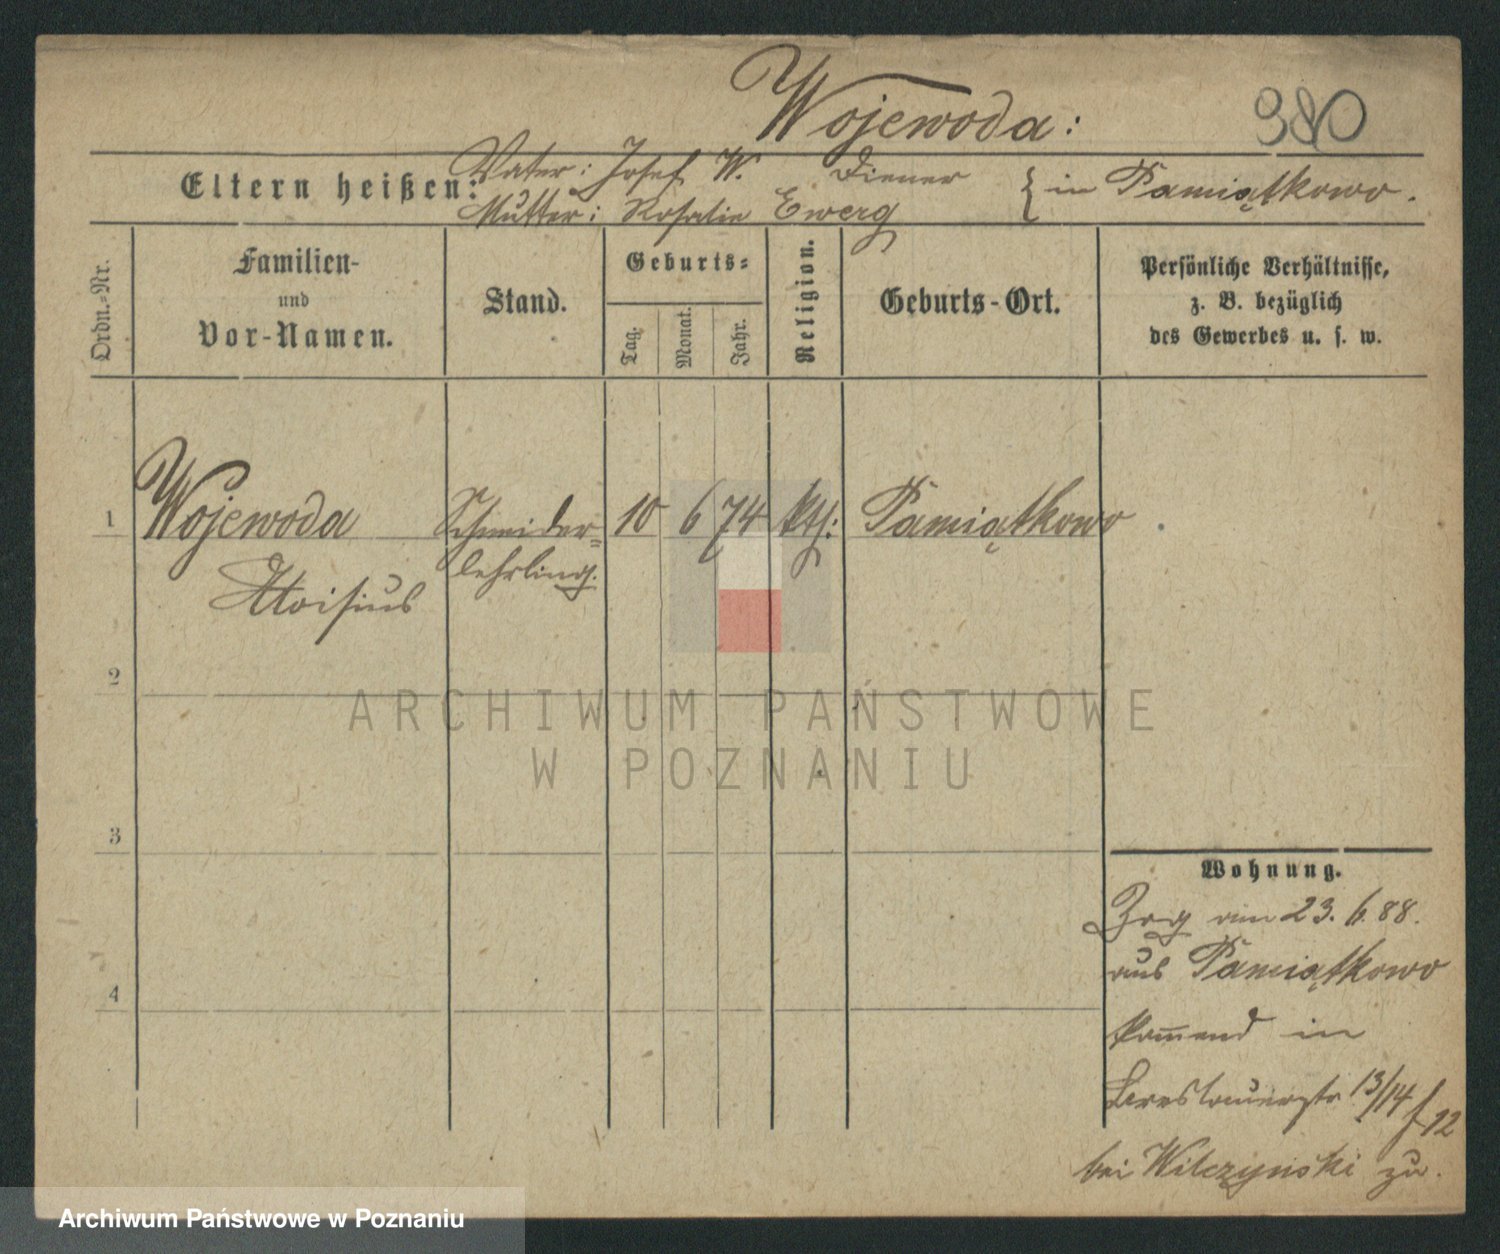 Wojewoda:
980
Eltern heißen:
Vater: Josef W. Diener
Mutter: Rosalie Ewerg
} in Pamiątkowo.
Ordn.-Nr.
Familien-
und
Vor-Namen.
Stand.
Geburts-
Tag.
Monat.
Jahr.
Religion.
Geburts-Ort.
Persönliche Verhältnisse,
z. B. bezüglich
des Gewerbes u. s. w.
1 Wojewoda Schneider= 10 6 74 kth: Pamiątkowo
Aloisius lehrling.
2
3
4
Wohnung.
Zog am 23. 6. 88.
aus Pamiątkowo
kom̄end in
Breslauerstr 13/14
f 12
bei Wilczynski zu.
ARCHIWUM PAŃSTWOWE
W POZNANIU
Archiwum Państwowe w Poznaniu